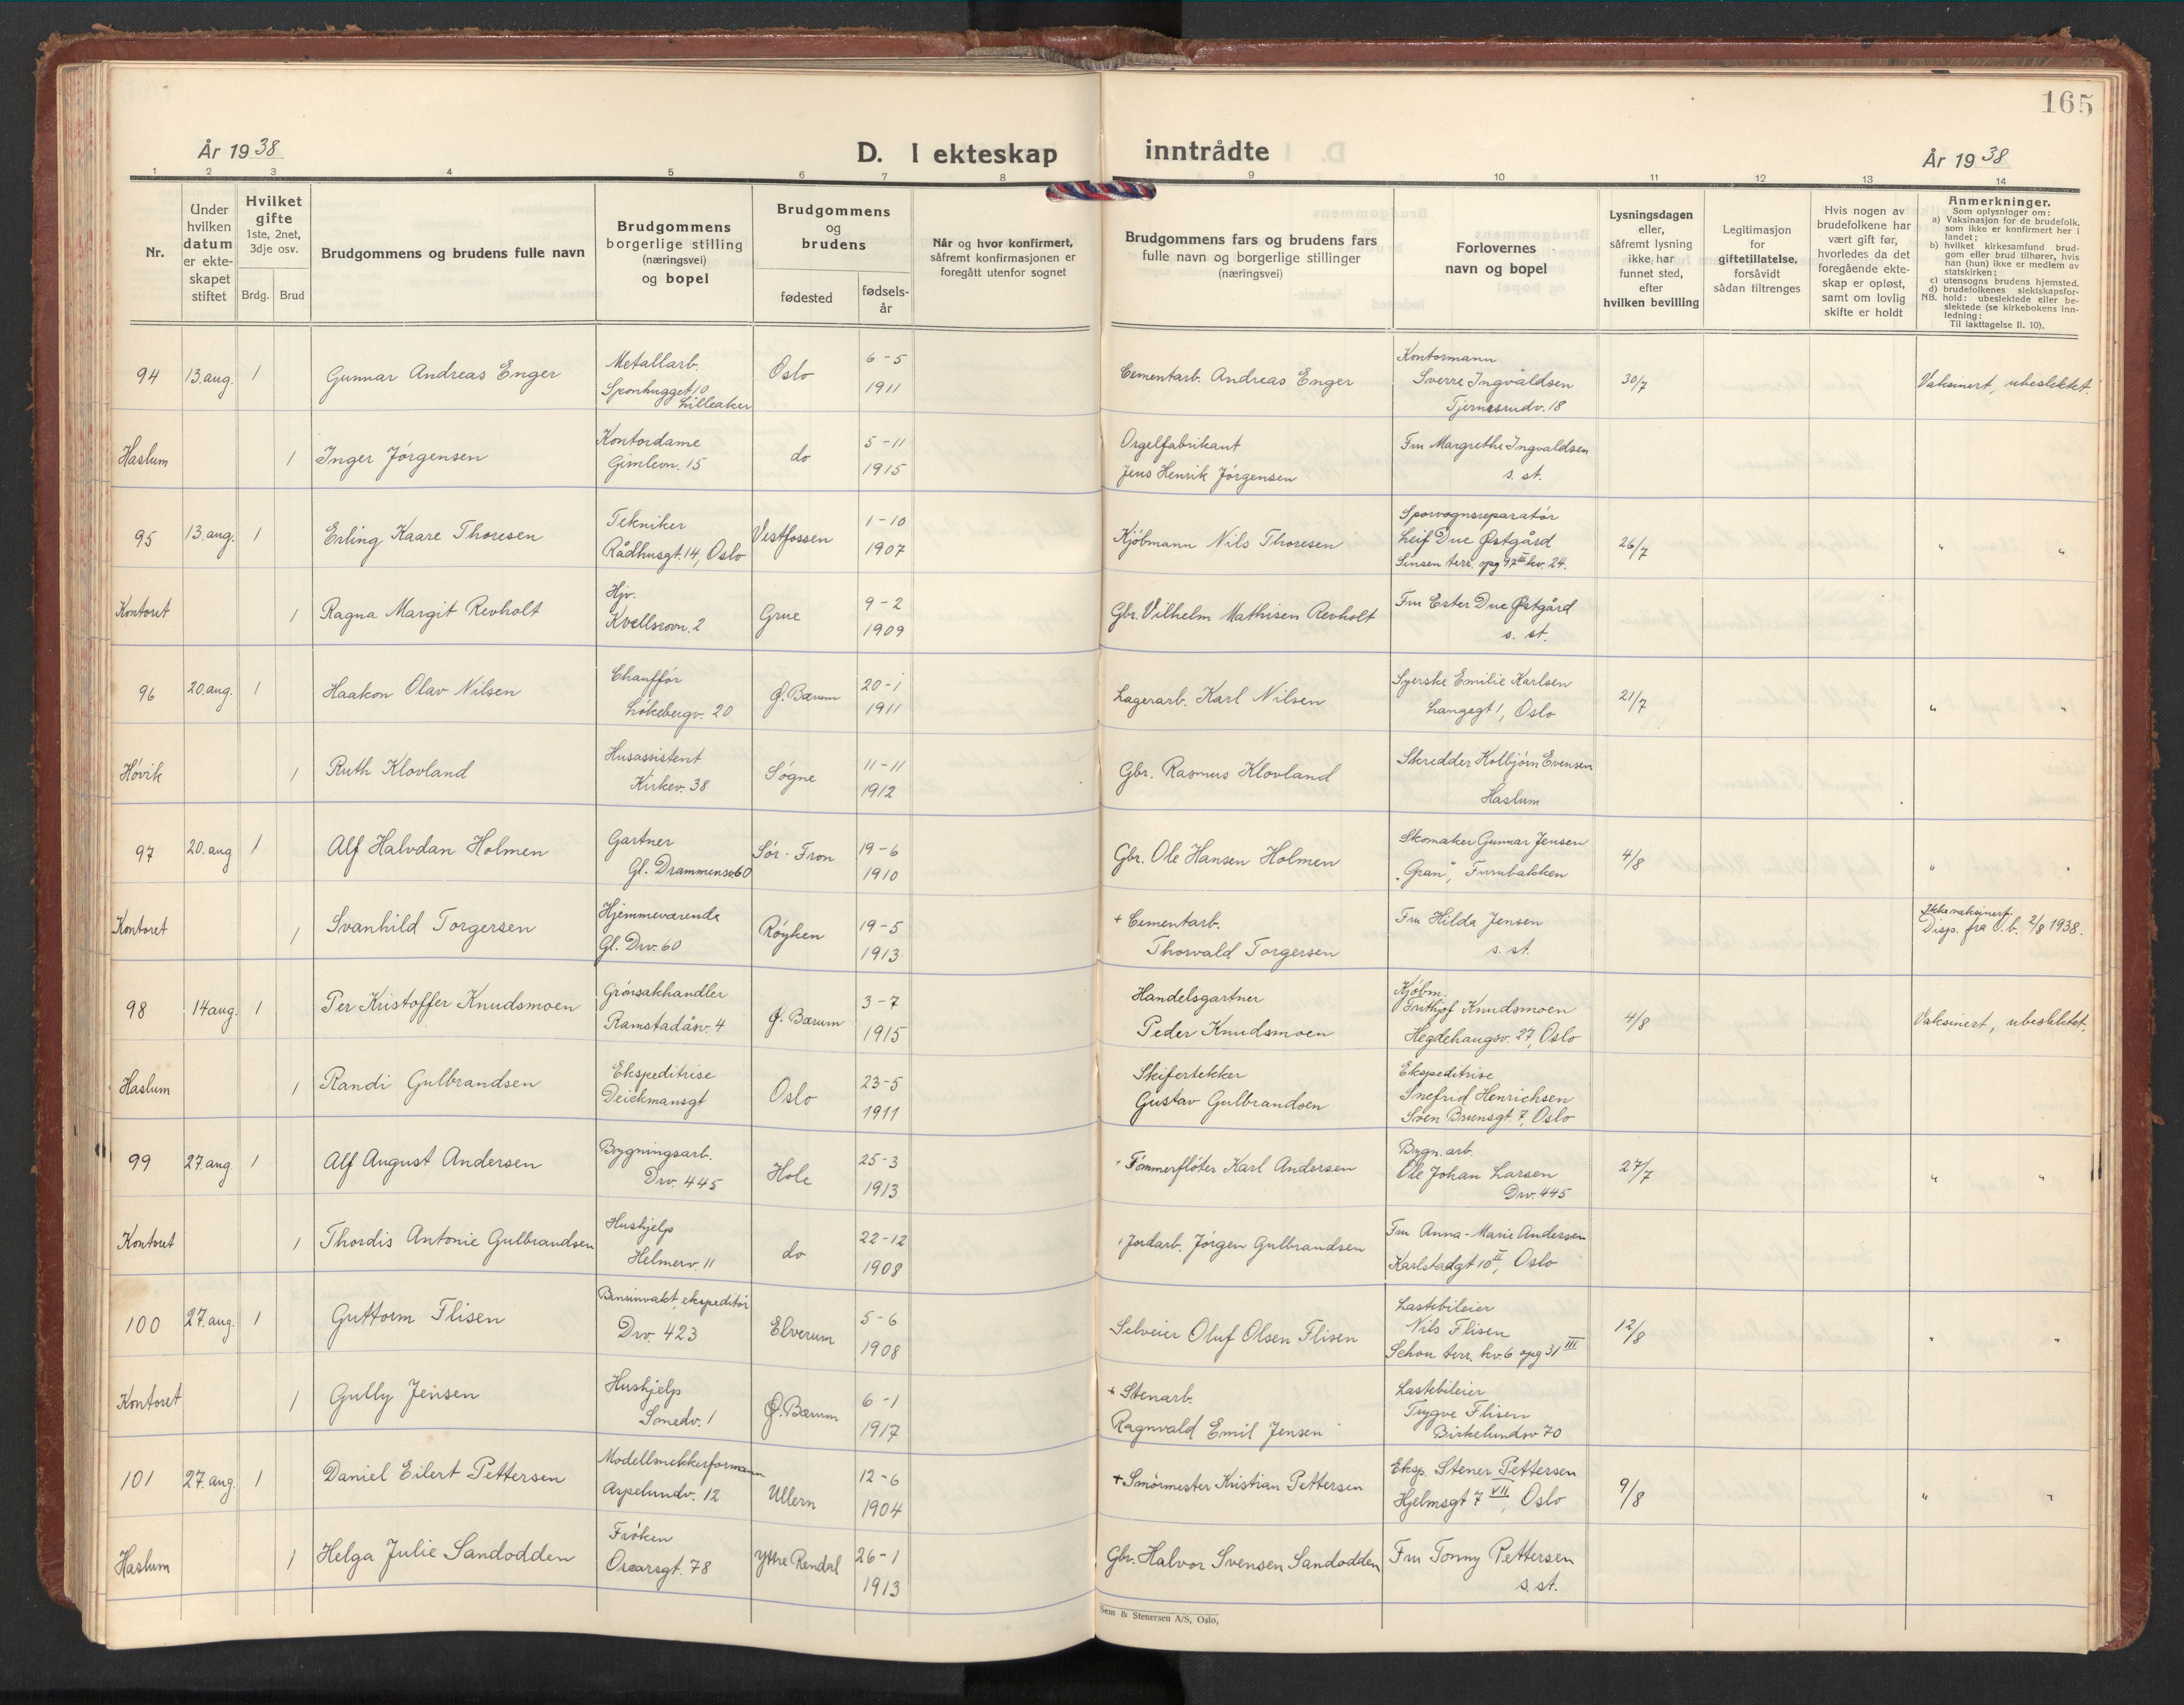 165
År 1938
D. I ekteskap inntrådte
År 1938
1 2 3 4 5 6 7 8 9 10 11 12 13 14
Nr.
Under hvilken datum er ekteskapet stiftet
Hvilket gifte 1ste, 2net, 3dje osv.
Brdg. Brud
Brudgommens og brudens fulle navn
Brudgommens borgerlige stilling (næringsvei) og bopel
Brudgommens og brudens
fødested
fødsels-år
Når og hvor konfirmert, såfremt konfirmasjonen er foregått utenfor sognet
Brudgommens fars og brudens fars fulle navn og borgerlige stillinger (næringsvei)
Forlovernes navn og bopel
Lysningsdagen eller, såfremt lysning ikke har funnet sted, efter hvilken bevilling
Legitimasjon for giftetillatelse, forsåvidt sådan tiltrenges
Hvis nogen av brudefolkene har vært gift før, hvorledes da det foregående ekteskap er opløst, samt om lovlig skifte er holdt
Anmerkninger.
Som oplysninger om:
a) Vaksinasjon for de brudefolk, som ikke er konfirmert her i landet;
b) hvilket kirkesamfund brudgom eller brud tilhører, hvis han (hun) ikke er medlem av statskirken;
c) utensogns brudens hjemsted.
d) brudefolkenes slektskapsforhold: ubeslektede eller beslektede (se kirkebokens innledning:
NB.
Til iakttagelse II. 10).
94 13.aug. 1 Gunnar Andreas Enger Metallarb. Sponhugget 10 Lilleaker Oslo 6-5 1911 Cementarb. Andreas Enger Kontormann Sverre Ingvaldsen Tjernsrudv. 18 30/7 Vaksinert, ubeslektet.
Haslum 1 Inger Jørgensen Kontordame Gimlevn. 15 do 5-11 1915 Orgelfabrikant Jens Henrik Jørgensen Fru Margrethe Ingvaldsen s. st.
95 13.aug. 1 Erling Kaare Thoresen Tekniker Rådhusgt. 14, Oslo Vestfossen 1-10 1907 Kjøbmann Nils Thoresen Sporvognsreparatør Leif Due Østgård Sinsen terr. opg 97 III kv. 24. 26/7 " "
Kontoret 1 Ragna Margit Revholt Hjv. Kvellsrovn. 2 Grue 9-2 1909 Gbr. Vilhelm Mathisen Revholt Fru Ester Due Østgård s. st.
96 20.aug. 1 Haakon Olav Nilsen Chauffør Løkebergv. 20 Ø. Bærum 20-1 1911 Lagerarb. Karl Nilsen Syerske Emilie Karlsen Langegt 1, Oslo 21/7 " "
Høvik 1 Ruth Klovland Husassistent Kirkev. 38 Søgne 11-11 1912 Gbr. Rasmus Klovland Skredder Kolbjørn Evensen Haslum
97 20.aug 1 Alf Halvdan Holmen Gartner Gl. Drammensv. 60 Sør-Fron 19-6 1910 Gbr. Ole Hansen Holmen Skomaker Gunnar Jensen "Gran", Furubakken 4/8 " "
Kontoret 1 Svanhild Torgersen Hjemmeværende Gl. Drv. 60 Røyken 19-5 1913 + Cementarb. Thorvald Torgersen Fru Hilda Jensen s. st. Ikke vaksinert. Disp. fra O.b. 2/8 1938.
98 14 aug. 1 Per Kristoffer Knudsmoen Grønsakhandler Ramstadåsv. 4 Ø. Bærum 3-7 1915 Handelsgartner Peder Knudsmoen Kjøbm. Frithjof Knudsmoen Hegdehaugsv. 27, Oslo 4/8 Vaksinert, ubeslektet.
Haslum 1 Randi Gulbrandsen Ekspeditrise Deickmansgt Oslo 23-5 1911 Skifertekker Gustav Gulbrandsen Ekspeditrise Snefrid Henrichsen Sven Brunsgt. 7, Oslo
99 27.aug. 1 Alf August Andersen Bygningsarb. Drv. 445 Hole 25-3 1913 + Tømmerfløter Karl Andersen Bygn. arb. Ole Johan Larsen Drv. 445 27/7 " "
Kontoret 1 Thordis Antonie Gulbrandsen Hushjelp Helmerv. 11 do 22-12 1908 + Jordarb. Jørgen Gulbrandsen Fru Anna-Marie Andersen Karlstadgt 10 II, Oslo
100 27.aug. 1 Guttorm Flisen Bensinvakt, ekspeditør Drv. 423 Elverum 5-6 1908 Selveier Oluf Olsen Flisen Lastebileier Nils Flisen Schou terr. kv. 6 opg 31 III 12/8 " "
Kontoret 1 Gully Jensen Hushjelp Sonedv. 1 Ø. Bærum 6-1 1917 + Stenarb. Ragnvald Emil Jensen Lastebileier Trygve Flisen Birkelundsv 70
101 27.aug. 1 Daniel Eilert Pettersen Modellsnekkerformann Aspelundv. 12 Ullern 12-6 1904 + Smørmester Kristian Pettersen Eksp. Stener Pettersen Hjelmsgt 7 VII, Oslo 9/8 " "
Haslum 1 Helga Julie Sandodden Frøken Oscarsgt. 78 Ytre Rendal 26-1 1913 Gbr. Halvor Svensen Sandodden Fru Tonny Pettersen s. st.
Sem & Stenersen A/S, Oslo,